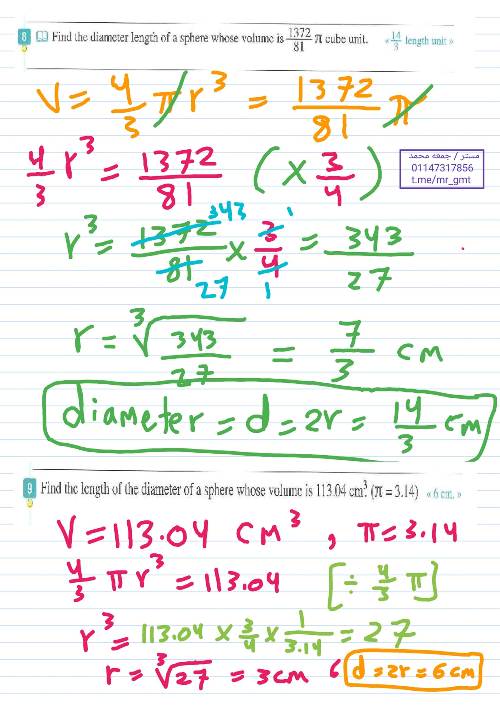 8 Find the diameter length of a sphere whose volume is 1372/81 π cube unit. « 14/3 length unit »
V = 4/3 π r³ = 1372/81 π
4/3 r³ = 1372/81 (× 3/4)
مستر / جمعه محمد
01147317856
t.me/mr_gmt
r³ = 1372/81 × 3/4 = 343/27
343 1
27 1
r = ∛343/27 = 7/3 cm
diameter = d = 2r = 14/3 cm
9 Find the length of the diameter of a sphere whose volume is 113.04 cm³ (π = 3.14) « 6 cm. »
V = 113.04 cm³ , π = 3.14
4/3 π r³ = 113.04 [÷ 4/3 π]
r³ = 113.04 × 3/4 × 1/3.14 = 27
r = ∛27 = 3 cm 6 d = 2r = 6 cm